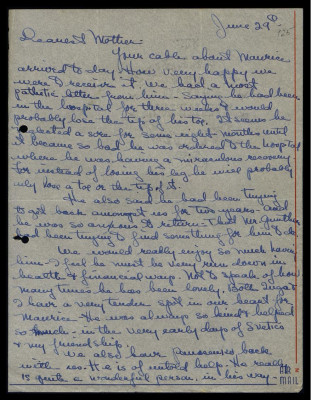 June 29th
Dearest Mother-
Your cable about Maurice
arrived to day. How very happy we
were to receive it. We had a most
pathetic letter from him - saying he had been
in the hospital for three weeks & would
probably lose the top of his toe. It seems he
neglected a sore for some eight months until
it became so bad he was ordered to the hospital
where he was having a miraculous recovery
for instead of losing his leg he will probably
only lose a toe or the tip of it.
He also said he had been trying
to get back amongst us for two years and
he was so anxious to return - that Mr Gunther
had been trying to find something for him to do.
We would really enjoy so much having
him - I feel he must be very run down in
health & financial ways. Not to speak of how
many times he has been lonely. Both
I have a very tender spot in our heart for
Maurice - He was always so kind & helpful
so much - in the very early days of
& my friendship.
We also have back
with us. He is of untold help. He really
is quite a wonderful person, in his way
AIR
MAIL